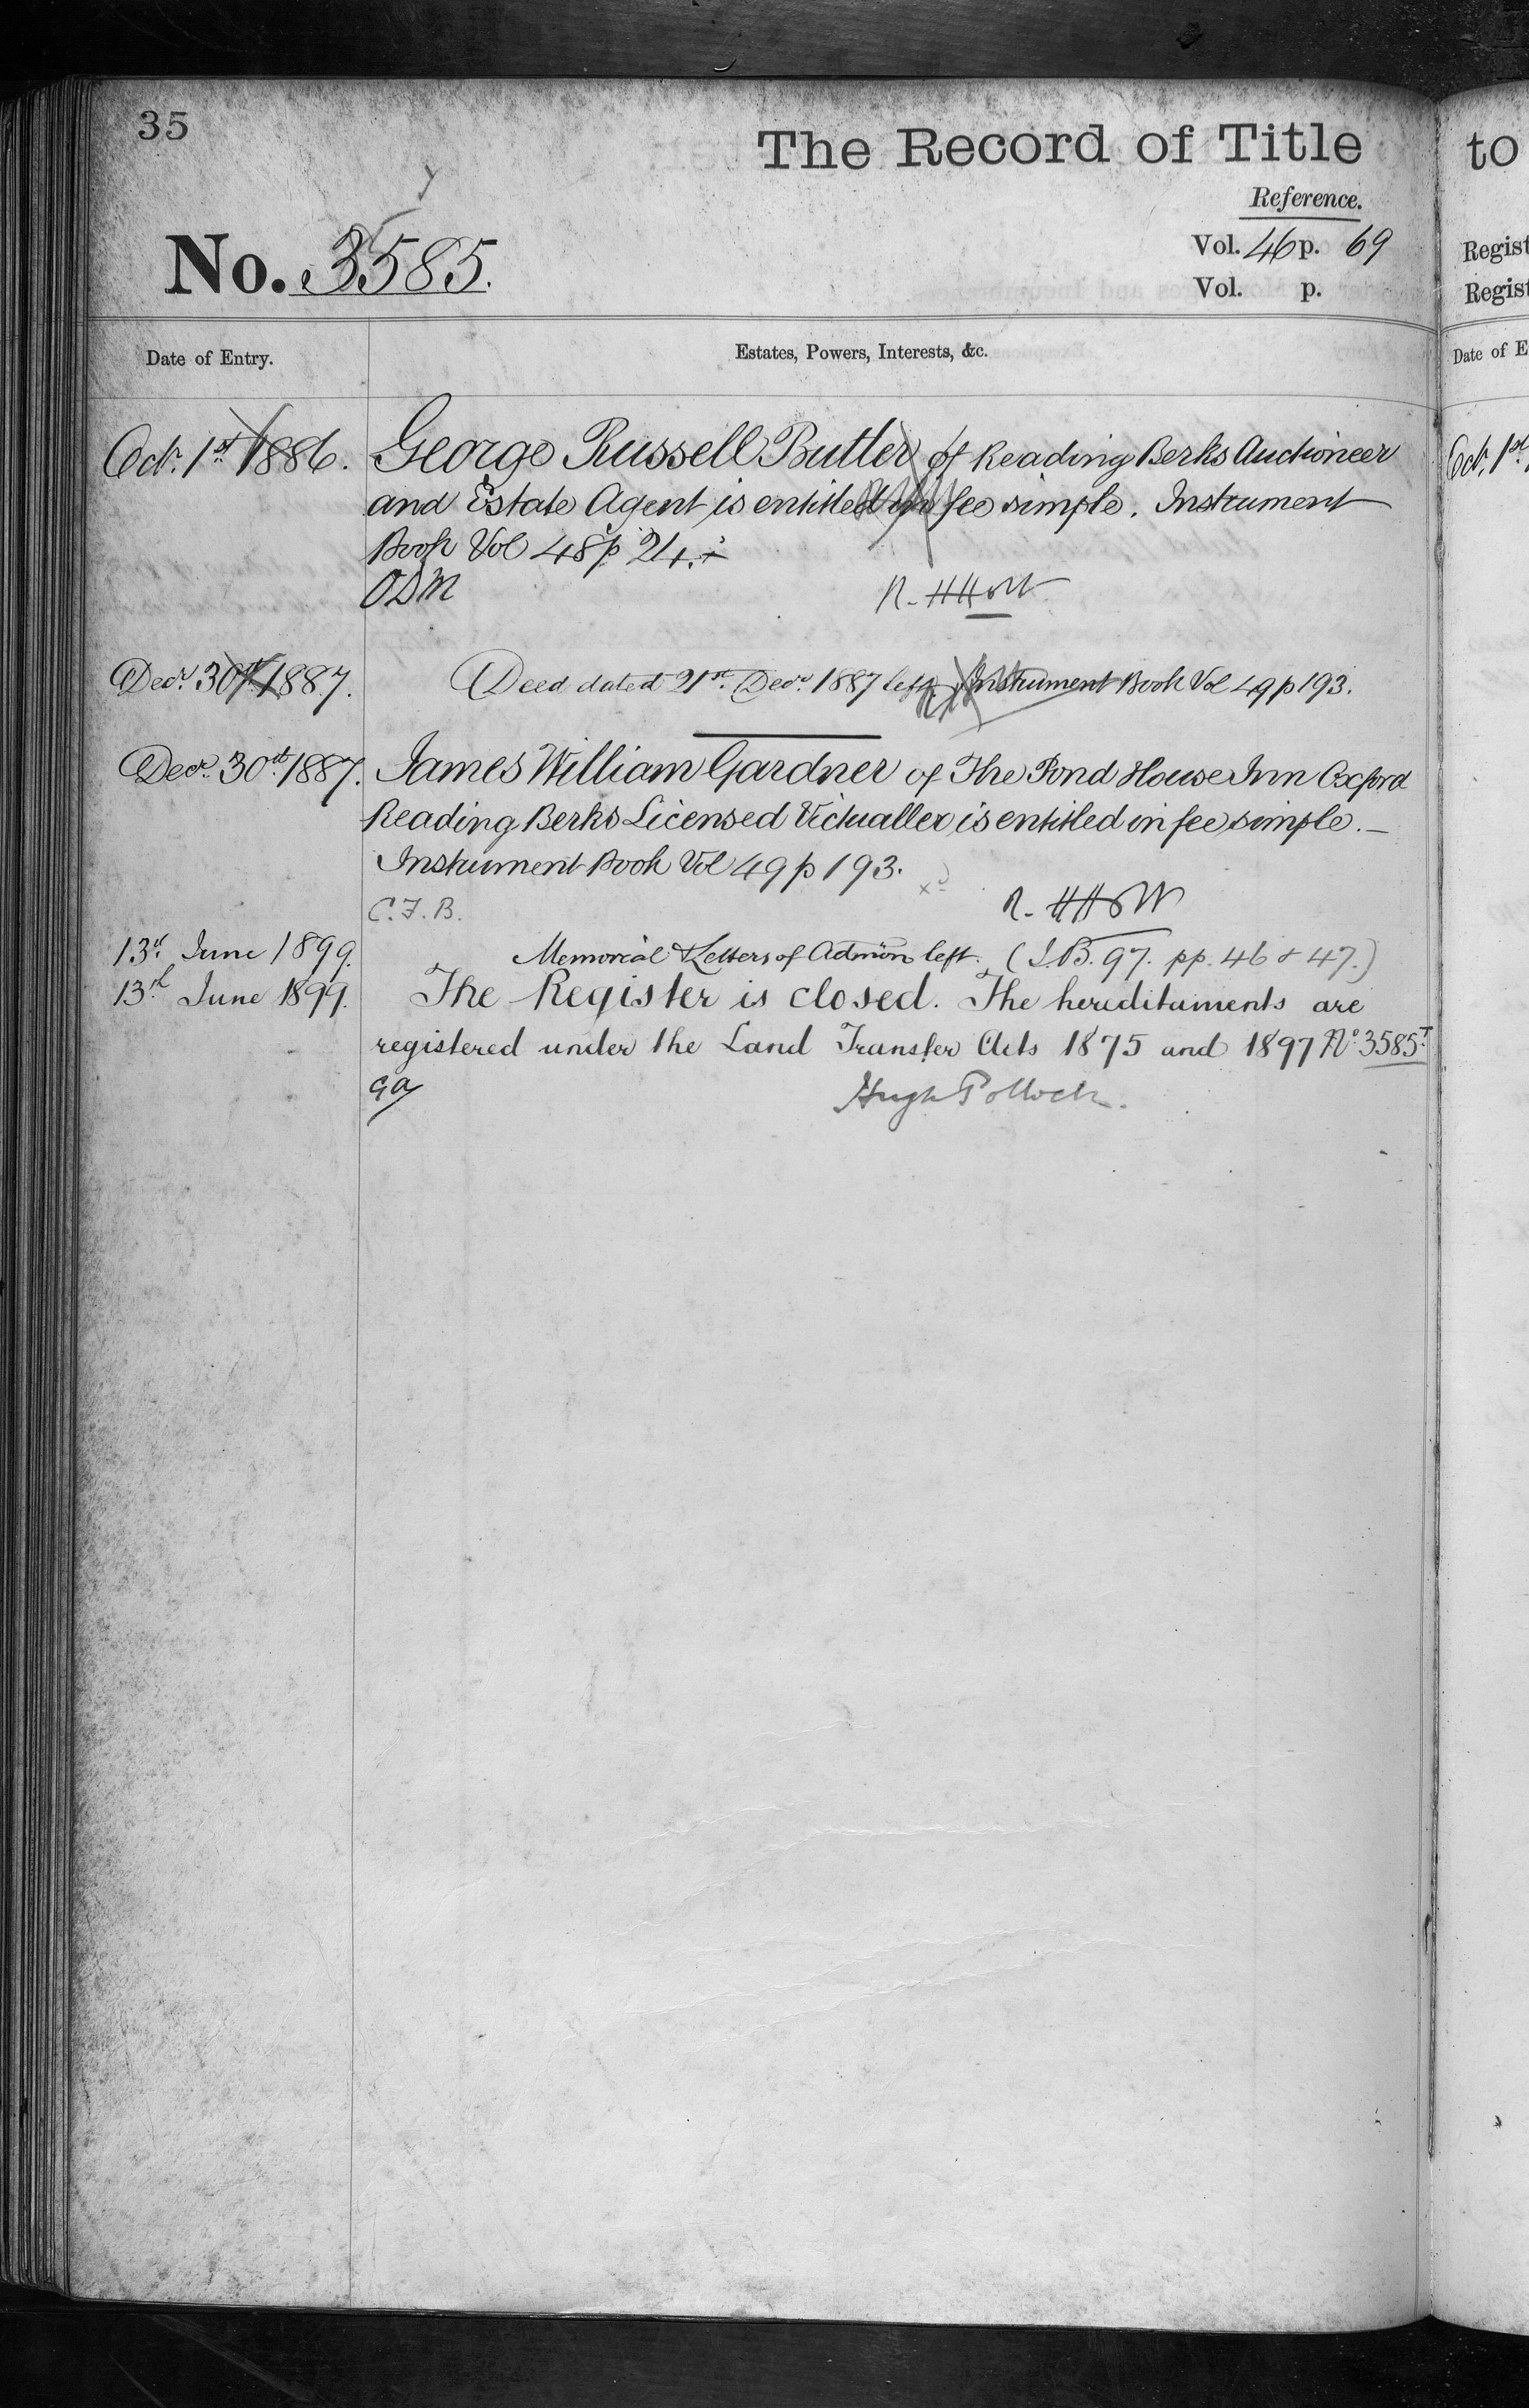 35
The Record of Title
to
Reference.
No. 3585.
Vol. 46 p. 69
Vol. p.
Regist
Regist
Date of Entry.
Estates, Powers, Interests, &c.
Date of E
Octr. 1st 1886. George Russell Butler of Reading Berks Auctioneer
and Estate Agent is entitled in fee simple. Instrument
Book Vol 48 p 24.
ODM
Octr. 1st
Decr. 30th 1887. Deed dated 21st Decr 1887 left Instrument Book Vol 49 p 193.
Decr. 30th 1887. James William Gardner of The Pond House Inn Oxford
Reading Berks Licensed Victualler is entitled in fee simple. —
Instrument Book Vol 49 p 193.
C.F.B.
13th June 1899. Memorial & Letters of Admōn left. (I.B. 97. pp. 46 & 47.)
13th June 1899. The Register is closed. The hereditaments are
registered under the Land Transfer Acts 1875 and 1897 No 3585T
GA Hugh Pollock.